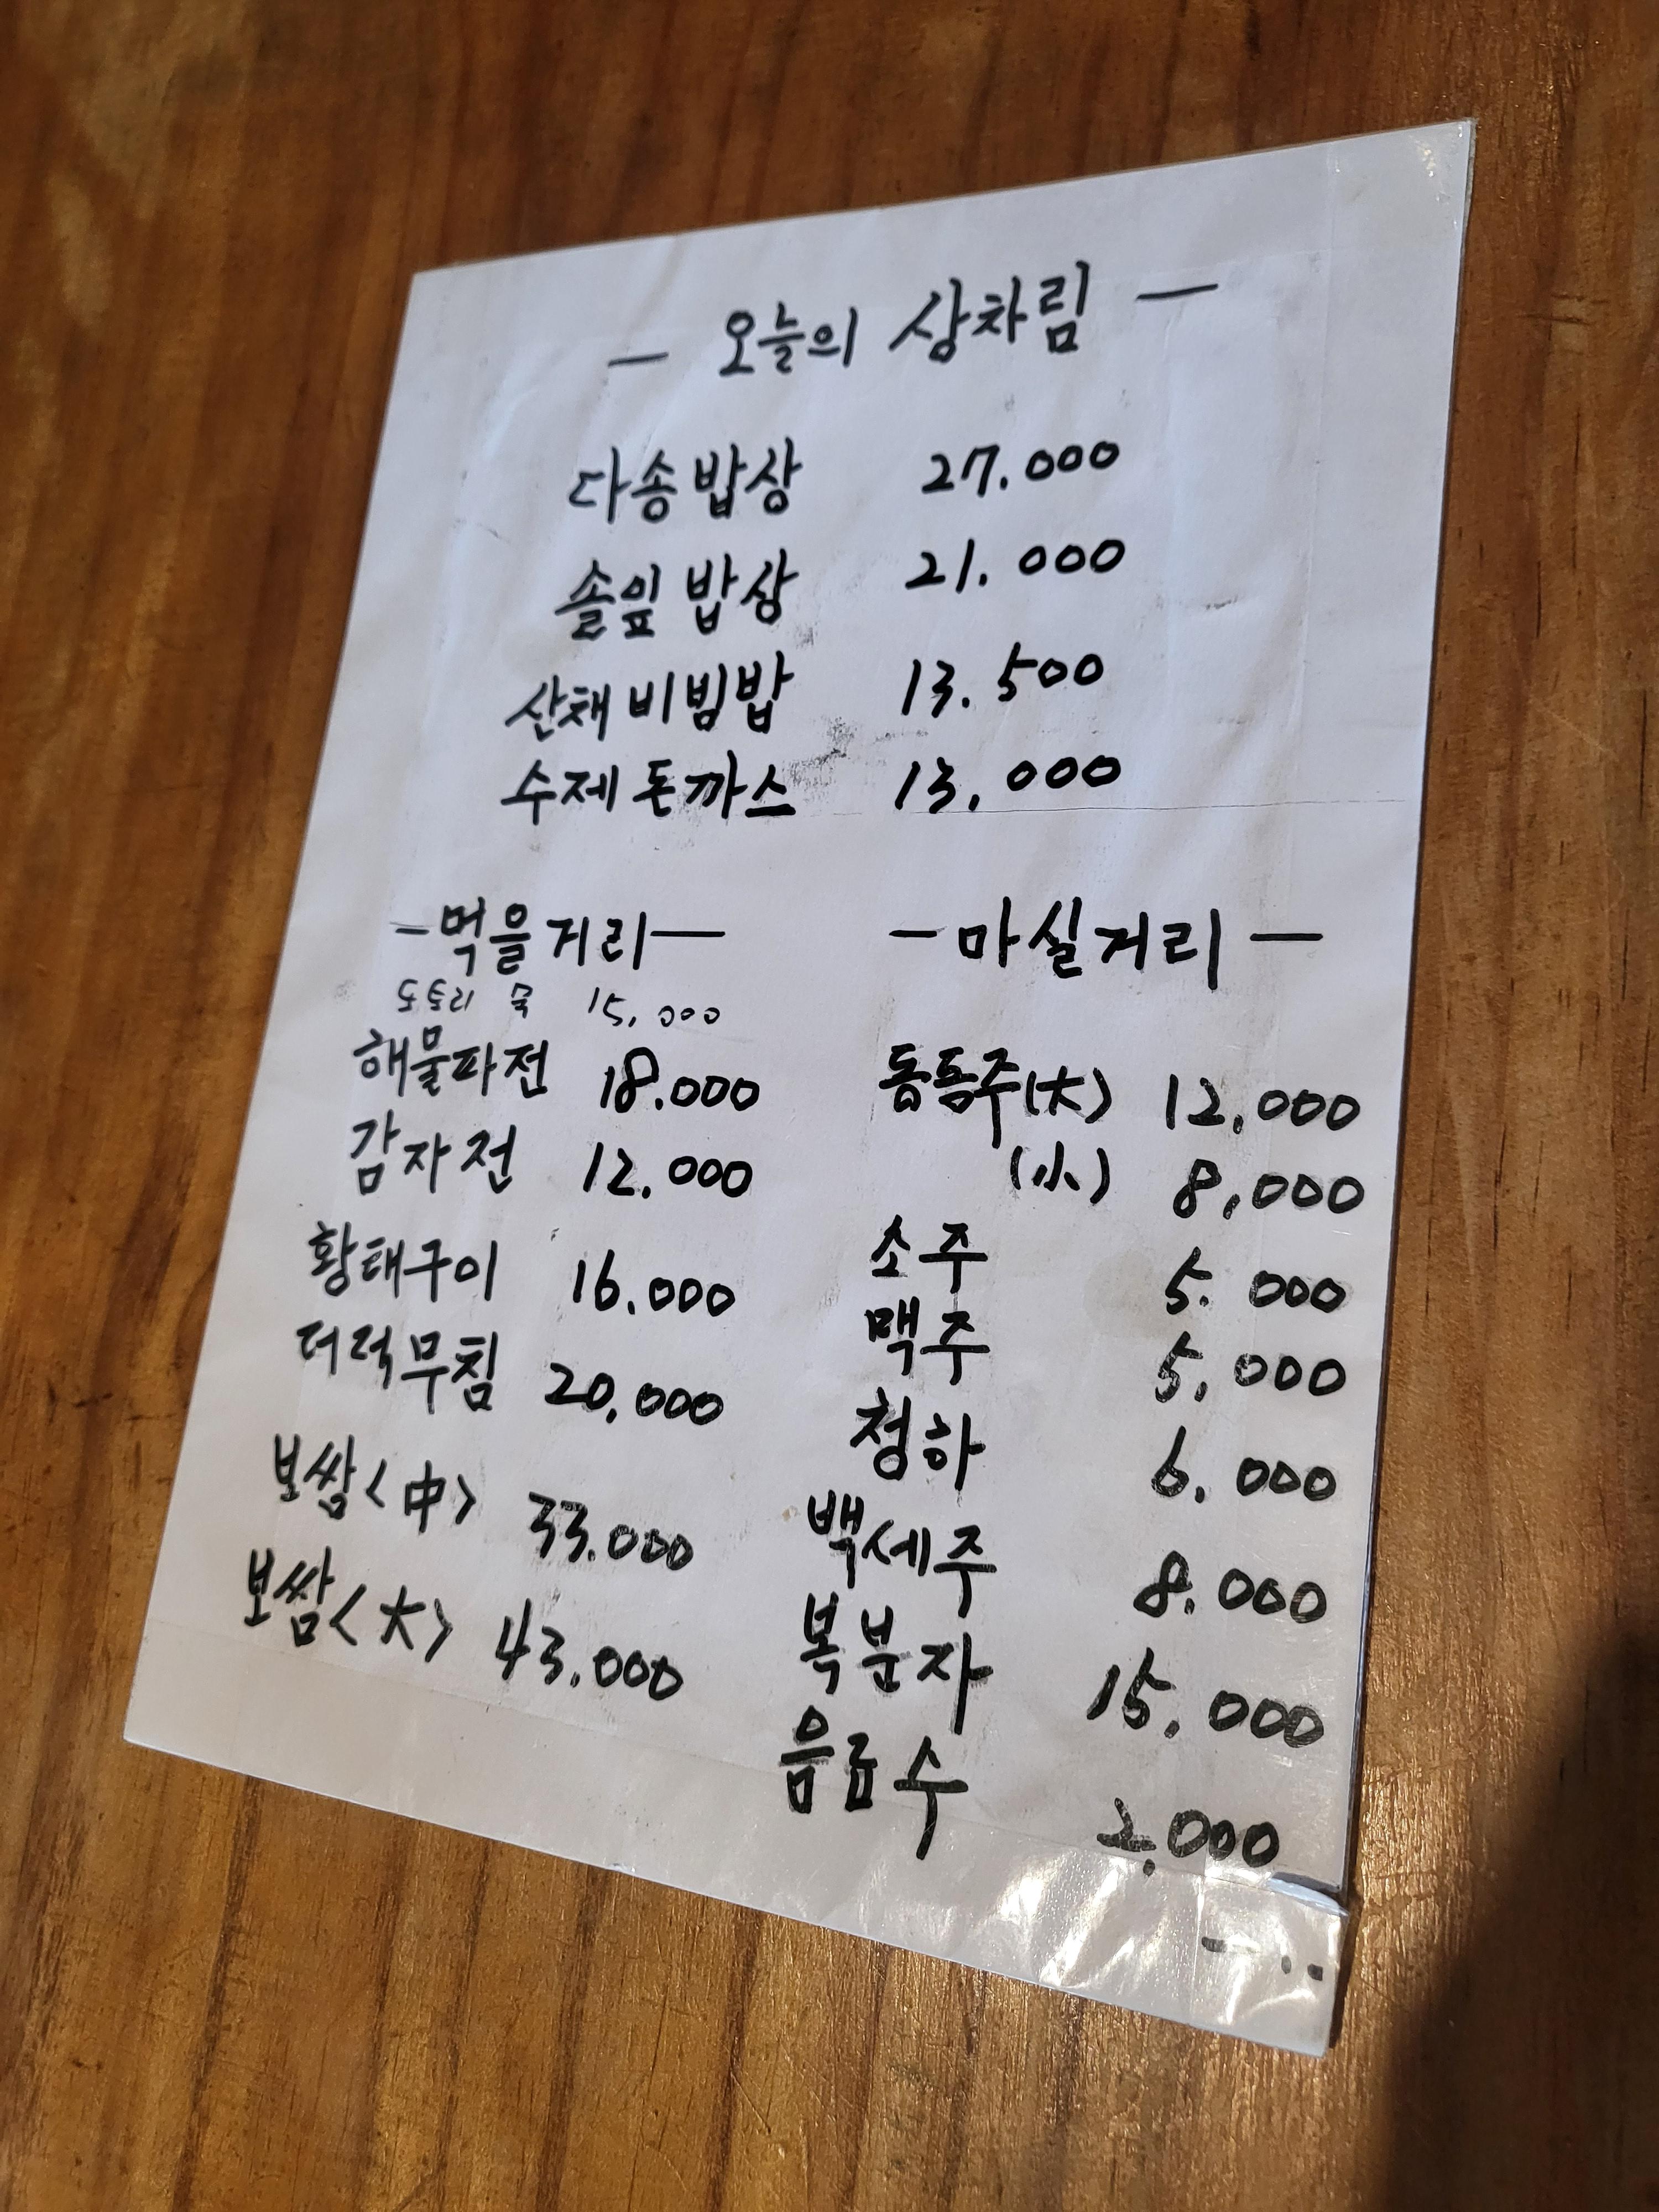 — 오늘의 상차림 —
다송밥상 27.000
솔잎 밥상 21.000
산채비빔밥 13.500
수제돈까스 13,000
-먹을거리—
도토리 묵 15,000
해물파전 18.000
감자전 12.000
황태구이 16.000
더덕무침 20,000
보쌈<中> 33.000
보쌈<大> 43.000
-마실거리—
동동주(大) 12,000
(小) 8,000
소주 5.000
맥주 5,000
청하 6.000
백세주 8.000
복분자 15.000
음료수 2,000